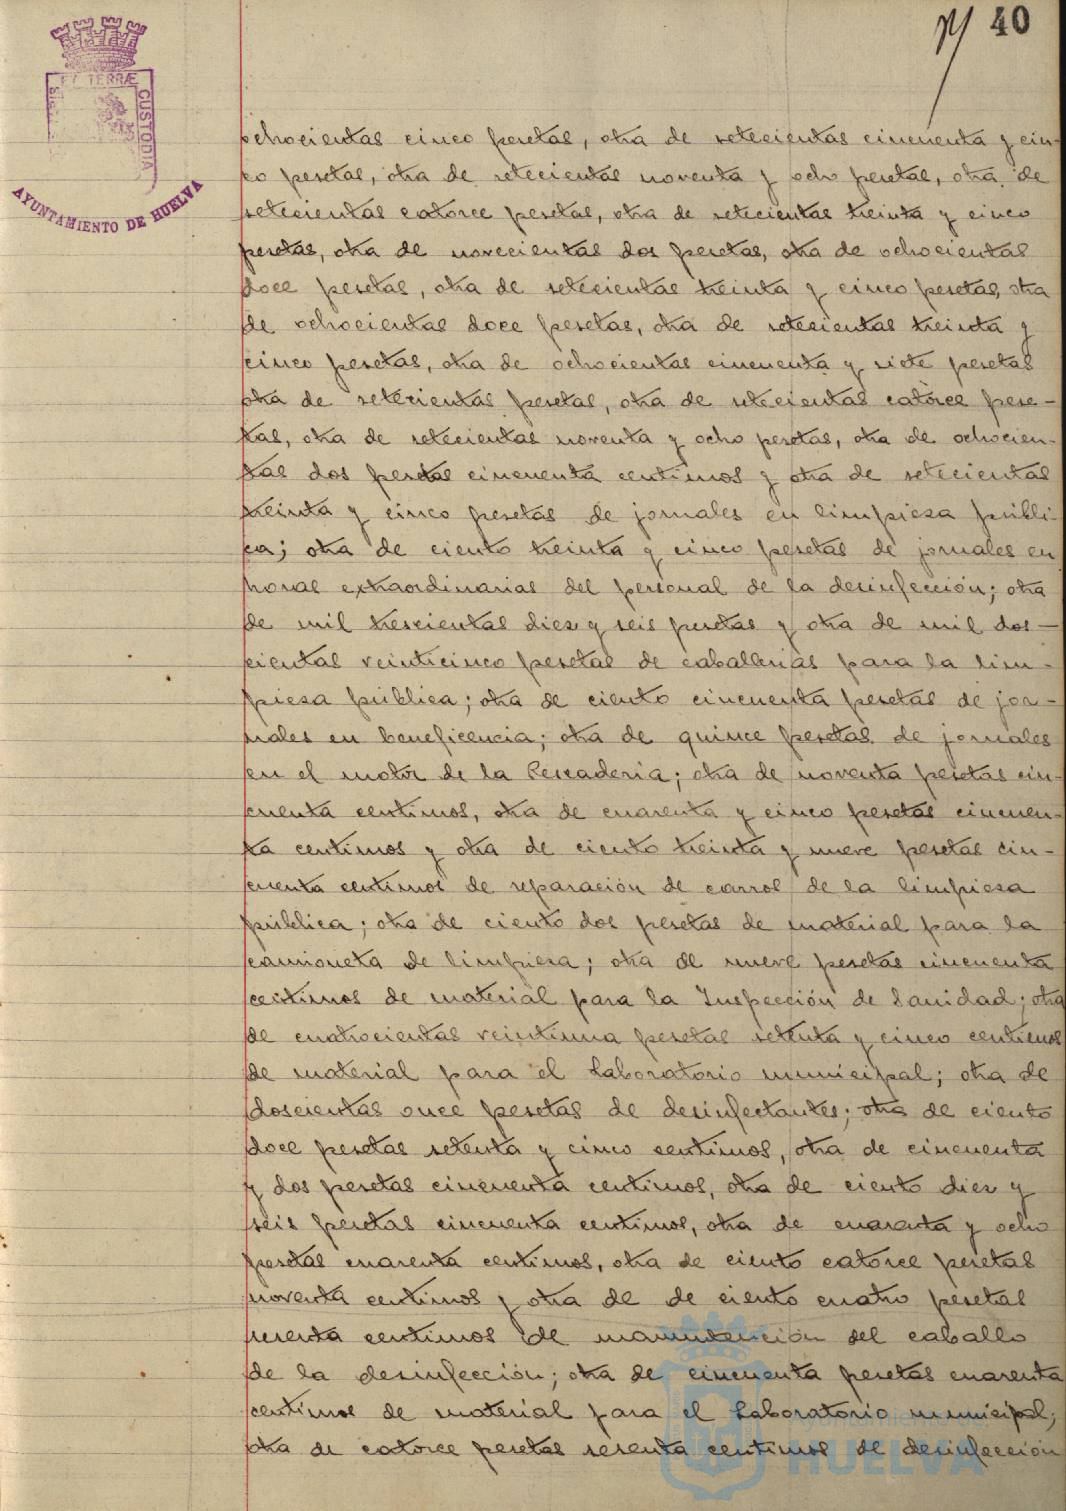 40
ET TERRÆ
CUSTODIA
AYUNTAMIENTO DE HUELVA
ochocientas cinco pesetas, otra de setecientas cincuenta y cin-
co pesetas, otra de setecientas noventa y ocho pesetas, otra de
setecientas catorce pesetas, otra de setecientas treinta y cinco
pesetas, otra de novecientas dos pesetas, otra de ochocientas
doce pesetas, otra de setecientas treinta y cinco pesetas, otra
de ochocientas doce pesetas, otra de setecientas treinta y
cinco pesetas, otra de ochocientas cincuenta y siete pesetas
otra de setecientas pesetas, otra de setecientas catorce pese-
tas, otra de setecientas noventa y ocho pesetas, otra de ochocien-
tas dos pesetas cincuenta centimos y otra de setecientas
treinta y cinco pesetas de jornales en limpieza públi-
ca; otra de ciento treinta y cinco pesetas de jornales en
horas extraordinarias del personal de la desinfección; otra
de mil trescientas diez y seis pesetas y otra de mil dos-
cientas veinticinco pesetas de caballerias para la lim-
pieza pública; otra de ciento cincuenta pesetas de jor-
nales en beneficencia; otra de quince pesetas de jornales
en el motor de la Pescaderia; otra de noventa pesetas cin-
cuenta centimos, otra de cuarenta y cinco pesetas cincuen-
ta centimos y otra de ciento treinta y nueve pesetas cin-
cuenta centimos de reparación de carros de la limpieza
pública; otra de ciento dos pesetas de material para la
camioneta de limpieza; otra de nueve pesetas cincuenta
centimos de material para la Inspección de Sanidad; otra
de cuatrocientas veintiuna pesetas setenta y cinco centimos
de material para el Laboratorio municipal; otra de
doscientas once pesetas de desinfectantes; otra de ciento
doce pesetas setenta y cinco centimos, otra de cincuenta
y dos pesetas cincuenta centimos, otra de ciento diez y
seis pesetas cincuenta centimos, otra de cuarenta y ocho
pesetas cuarenta centimos, otra de ciento catorce pesetas
noventa centimos y otra de de ciento cuatro pesetas
sesenta centimos de manutención del caballo
de la desinfección; otra de cincuenta pesetas cuarenta
centimos de material para el Laboratorio municipal;
otra de catorce pesetas sesenta centimos de desinfección
Ayuntamiento de
HUELVA